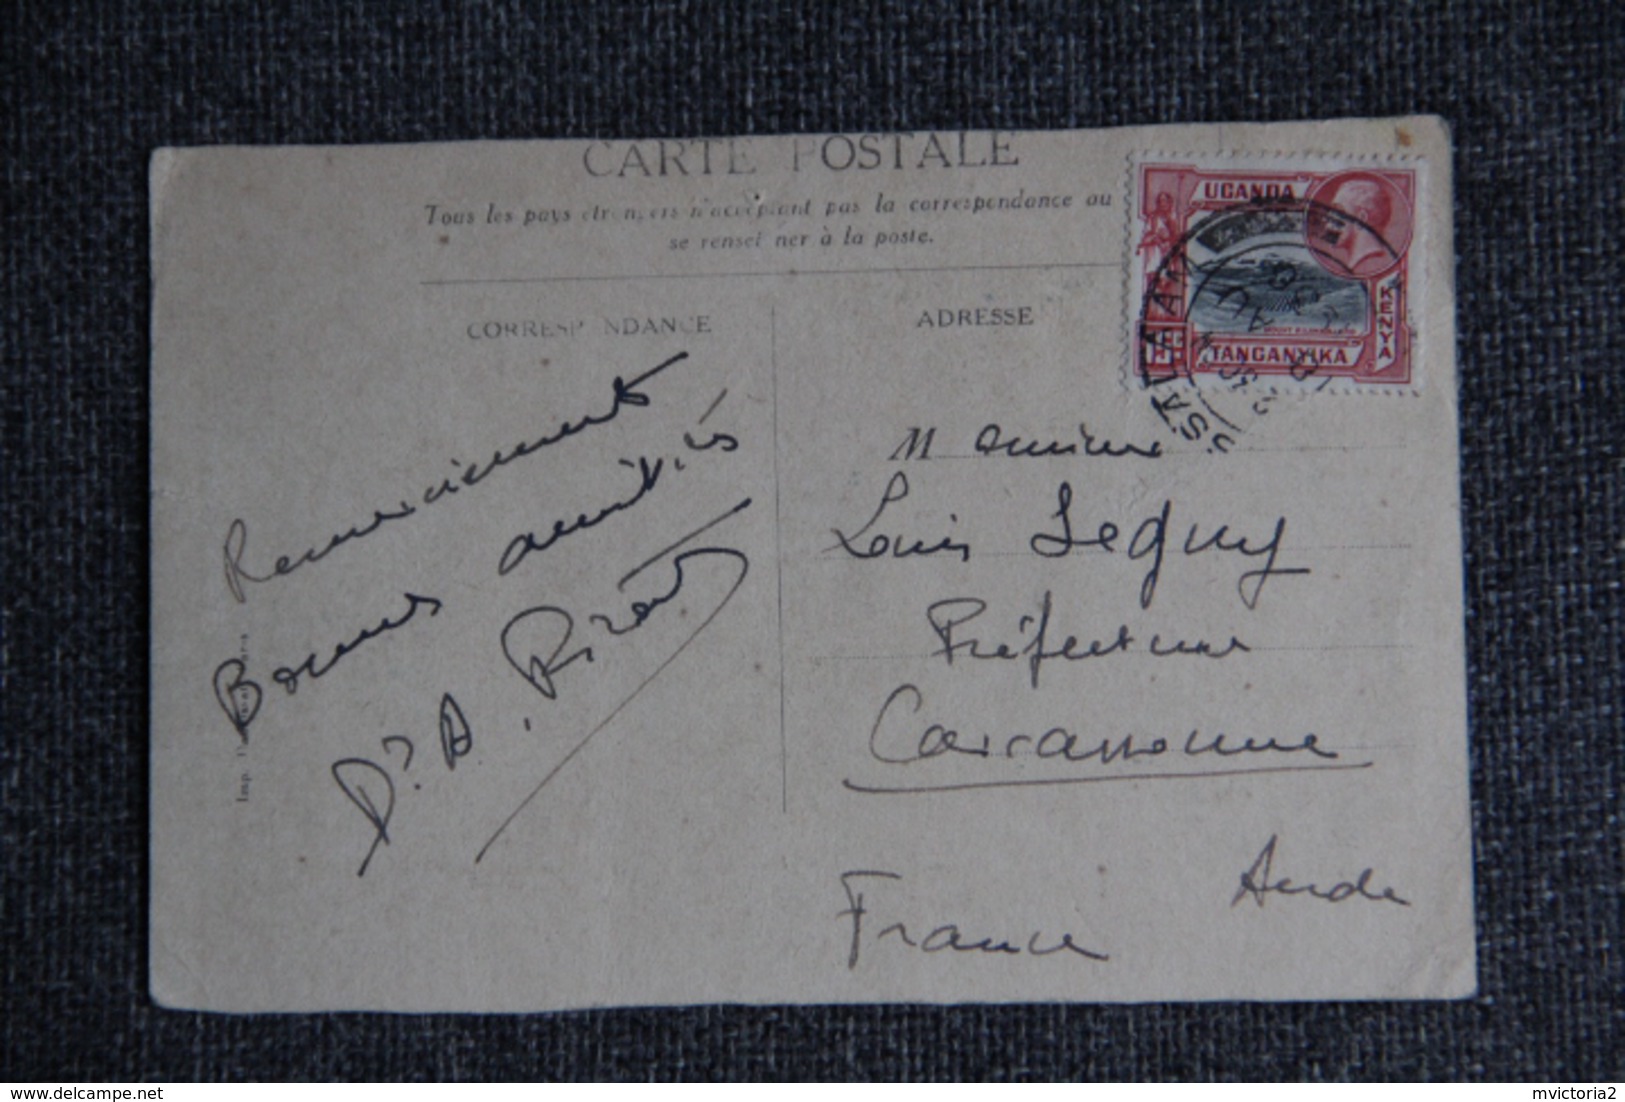 CARTE POSTALE
Tous les pays étrangers n'acceptant pas la correspondance au
se renseigner à la poste.
CORRESPONDANCE
ADRESSE
UGANDA
KENYA
TANGANYIKA
SALAAM
Remerciements
Bonnes amitiés
Dr A.
Imp.
M
Louis Seguy
Préfecture
Carcassonne
Aude
France
delcampe.net
mvictoria2